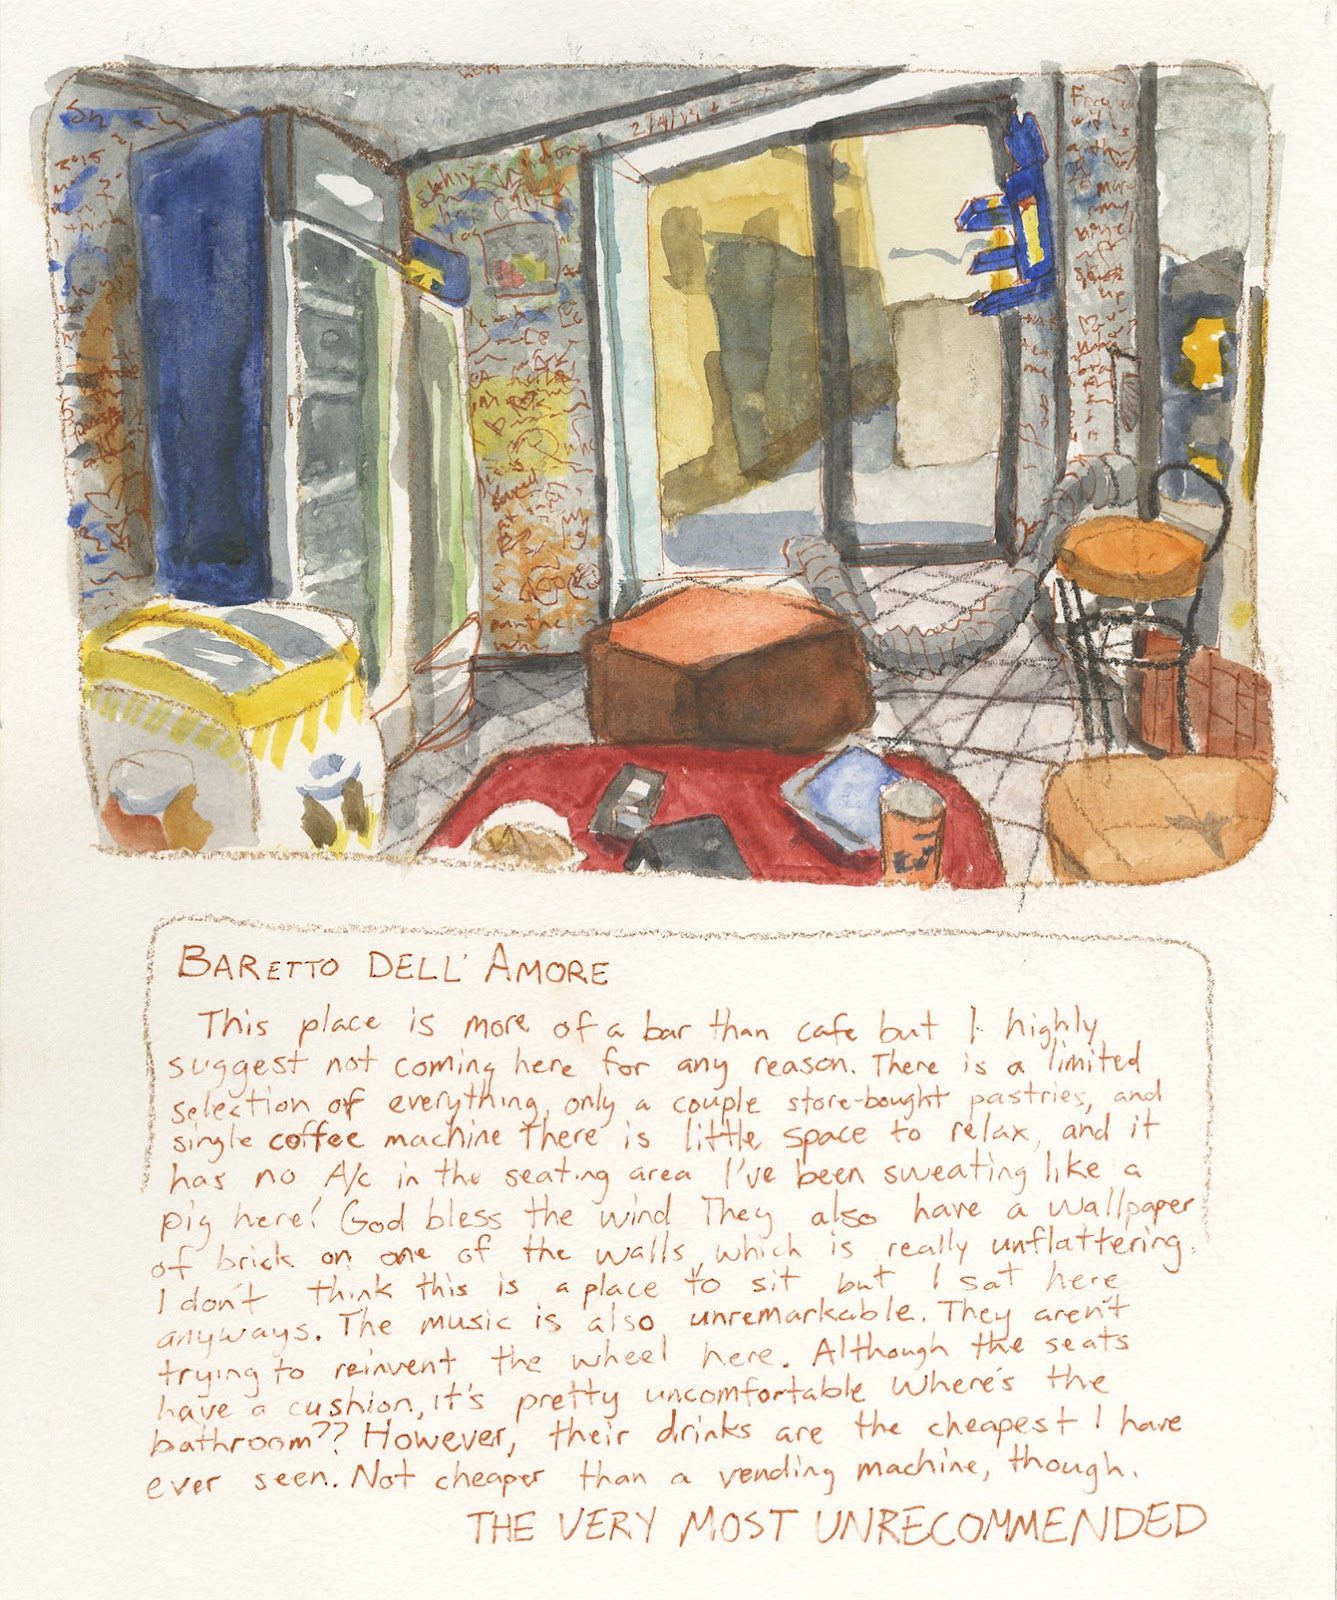 2/4/19
BARETTO DELL' AMORE
This place is more of a bar than cafe but I highly
suggest not coming here for any reason. There is a limited
selection of everything, only a couple store-bought pastries, and
single coffee machine There is little space to relax, and it
has no A/c in the seating area I've been sweating like a
pig here! God bless the wind They also have a wallpaper
of brick on one of the walls, which is really unflattering.
I don't think this is a place to sit but I sat here
anyways. The music is also unremarkable. They aren't
trying to reinvent the wheel here. Although the seats
have a cushion, it's pretty uncomfortable Where's the
bathroom?? However, their drinks are the cheapest I have
ever seen. Not cheaper than a vending machine, though.
THE VERY MOST UNRECOMMENDED